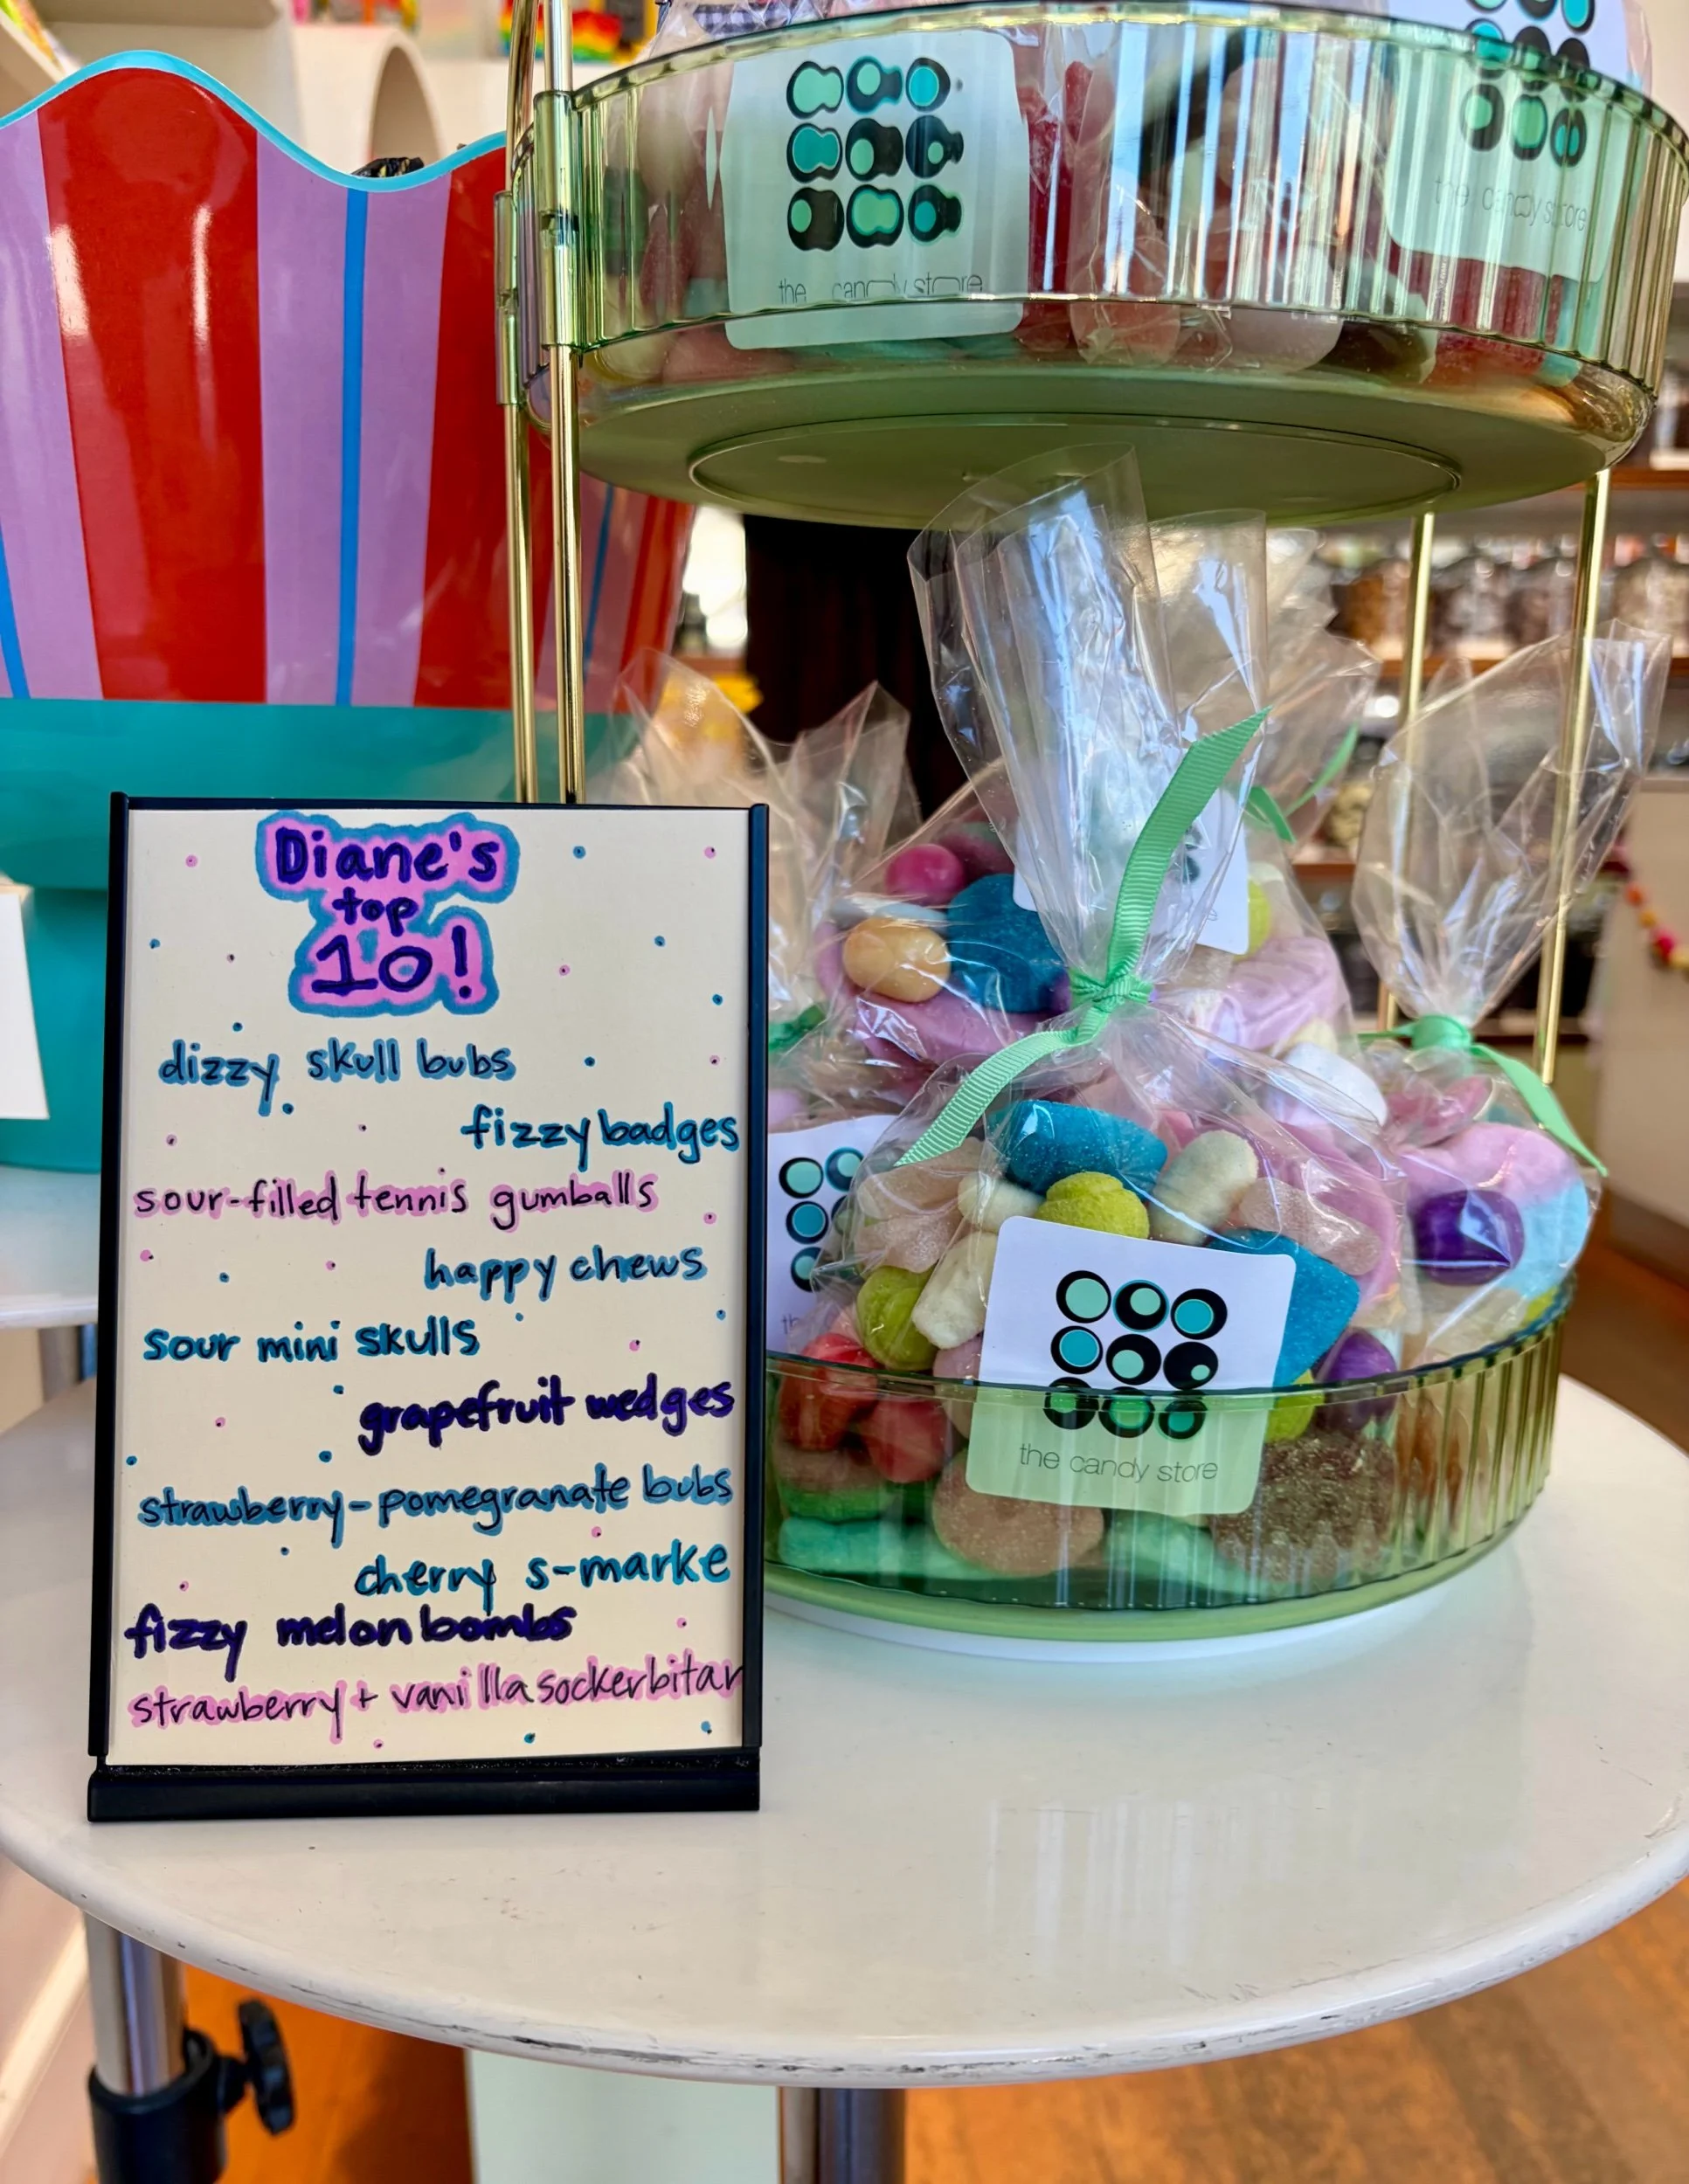 the candy store
the candy store
Diane's
top
10!
dizzy skull bubs
fizzy badges
sour-filled tennis gumballs
happy chews
sour mini skulls
grapefruit wedges
strawberry-pomegranate bubs
cherry s-marke
fizzy melon bombs
strawberry + vanilla sockerbitar
the candy store